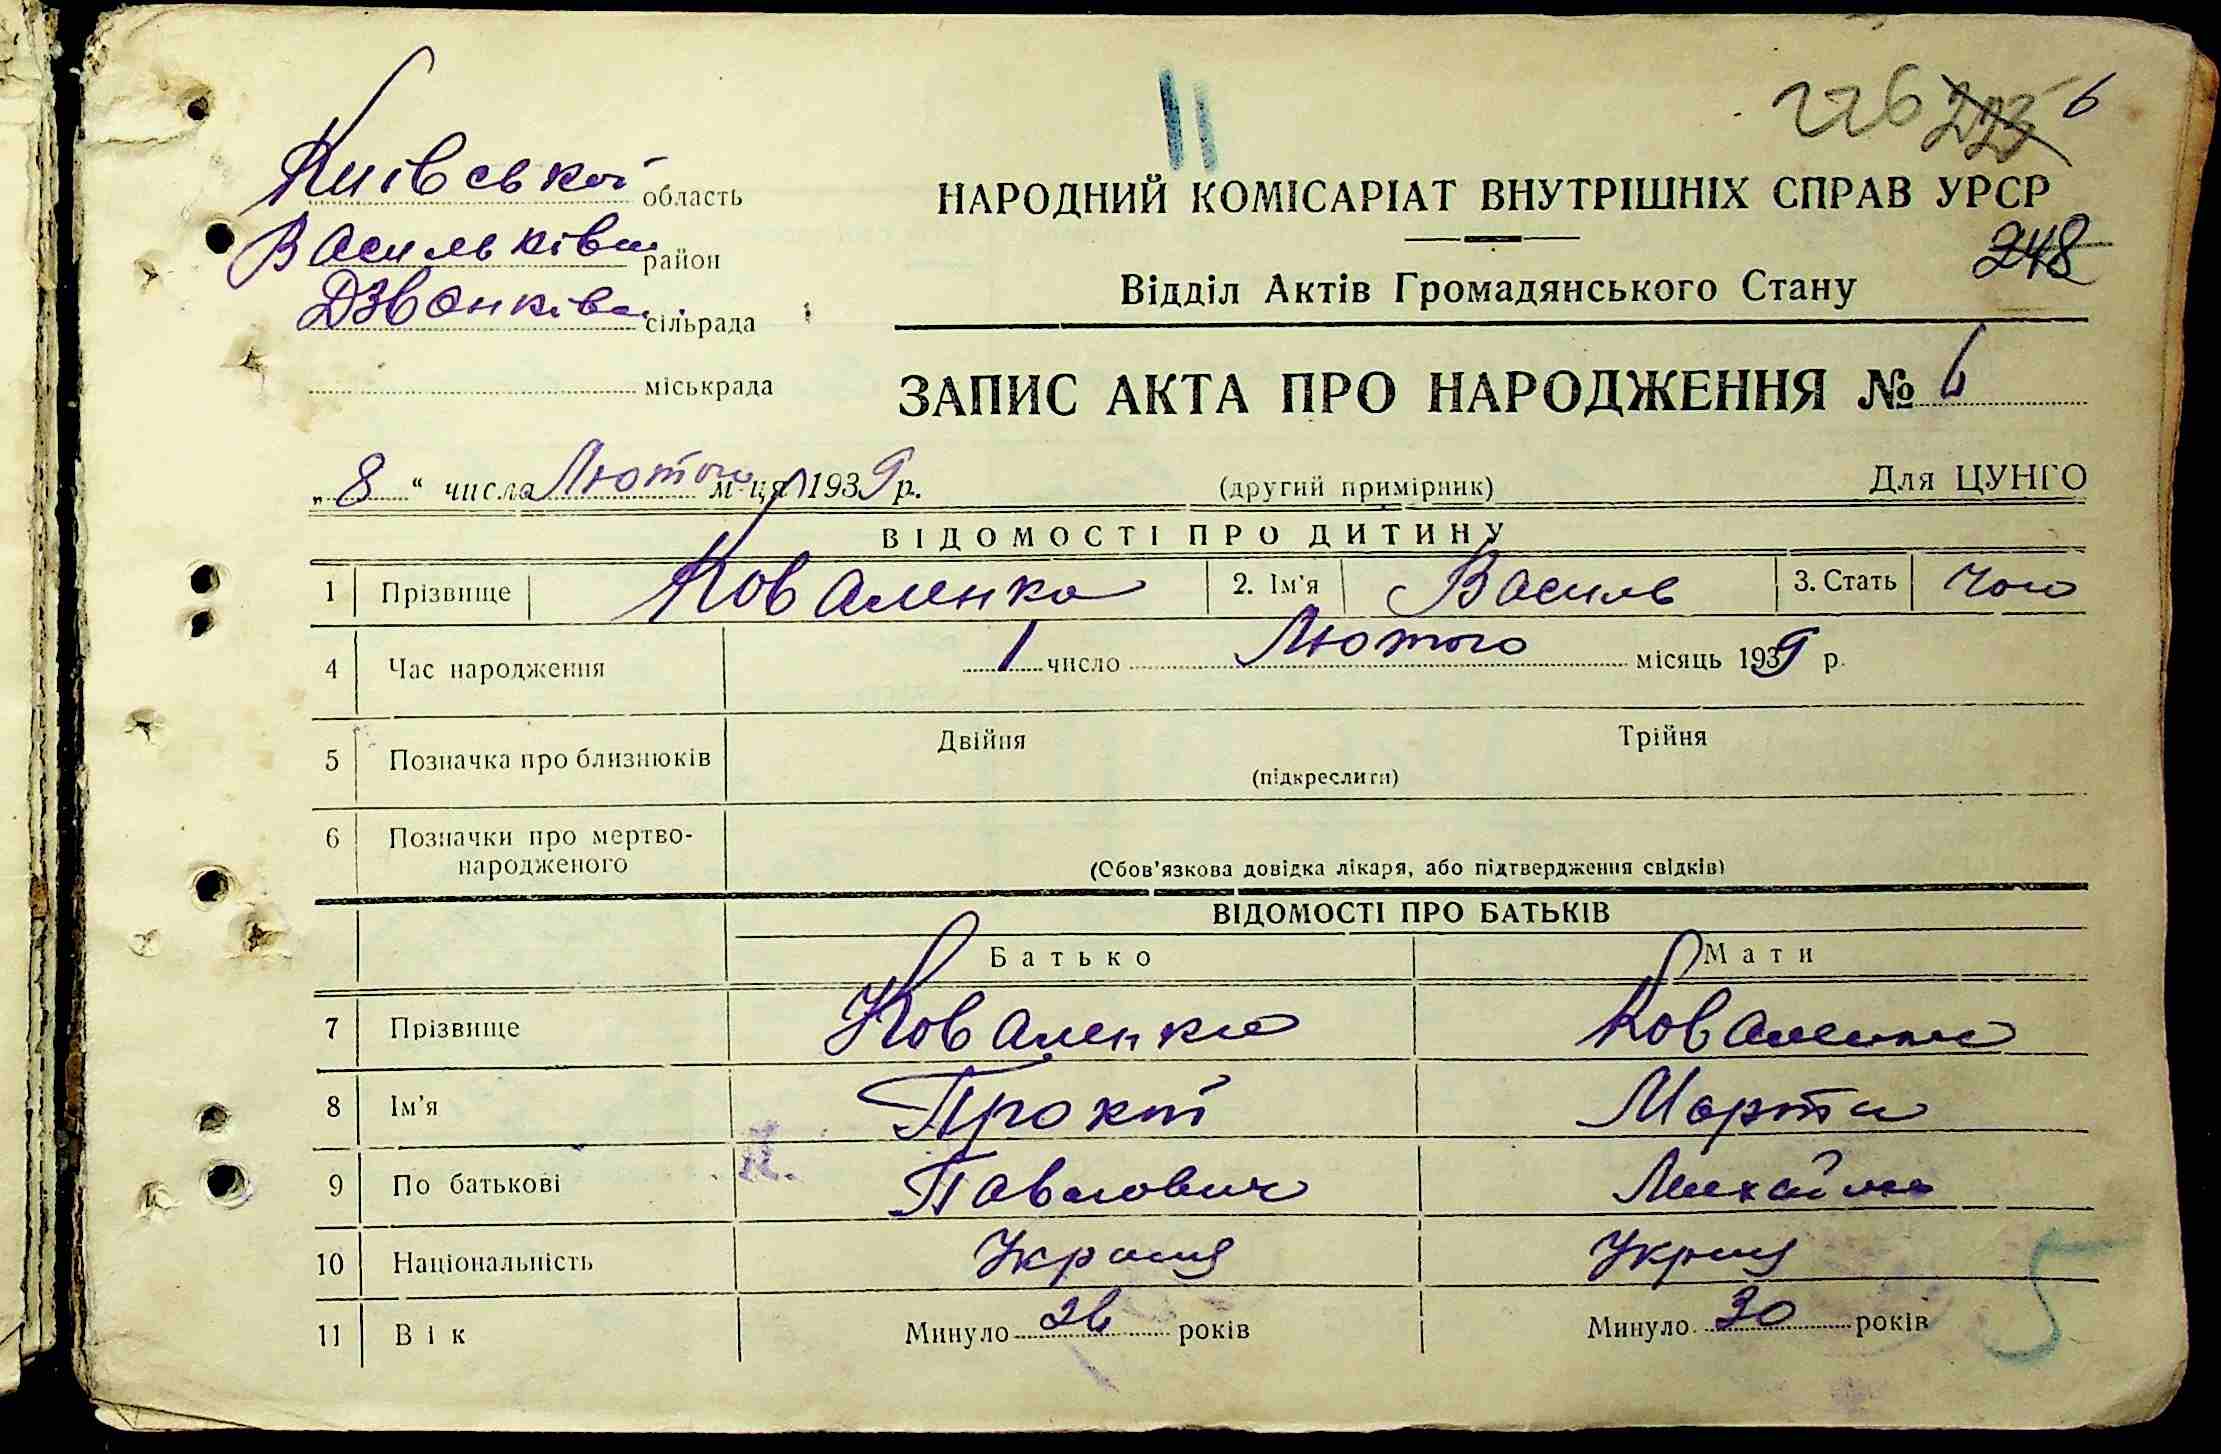 11
226 223 6
Київської область
НАРОДНИЙ КОМІСАРІАТ ВНУТРІШНІХ СПРАВ УРСР
Васильківськ район
248
Відділ Актів Громадянського Стану
Дзвонківськ сільрада
міськрада
ЗАПИС АКТА ПРО НАРОДЖЕННЯ № 6
„8“ числа Лютого м-ця 1939 р.
(другий примірник)
Для ЦУНГО
ВІДОМОСТІ ПРО ДИТИНУ
1 Прізвище Коваленко 2. Ім'я Василь 3. Стать Чол
4 Час народження 1 число Лютого місяць 1939 р.
5 Позначка про близнюків Двійня Трійня
(підкреслити)
6 Позначки про мертво-
народженого
(Обов'язкова довідка лікаря, або підтвердження свідків)
ВІДОМОСТІ ПРО БАТЬКІВ
Батько Мати
7 Прізвище Коваленко Коваленко
8 Ім'я Прокіп Марта
9 По батькові Павлович Михайл
10 Національність
11 Вік Минуло 26 років Минуло 30 років
5